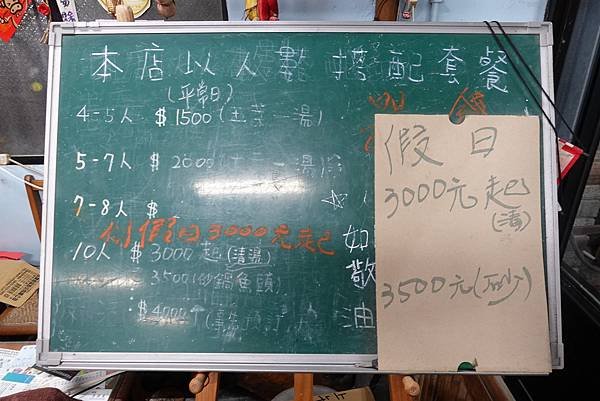 本店以人數搭配套餐
(平常日)
4-5人 $1500(五菜一湯)
5-7人 $2000
7-8人 $
假日3000元起
10人 $3000起(清湯)
3500(砂鍋魚頭)
$4000↑
如
敬
油
假日
3000元起
(清)
3500元(砂)